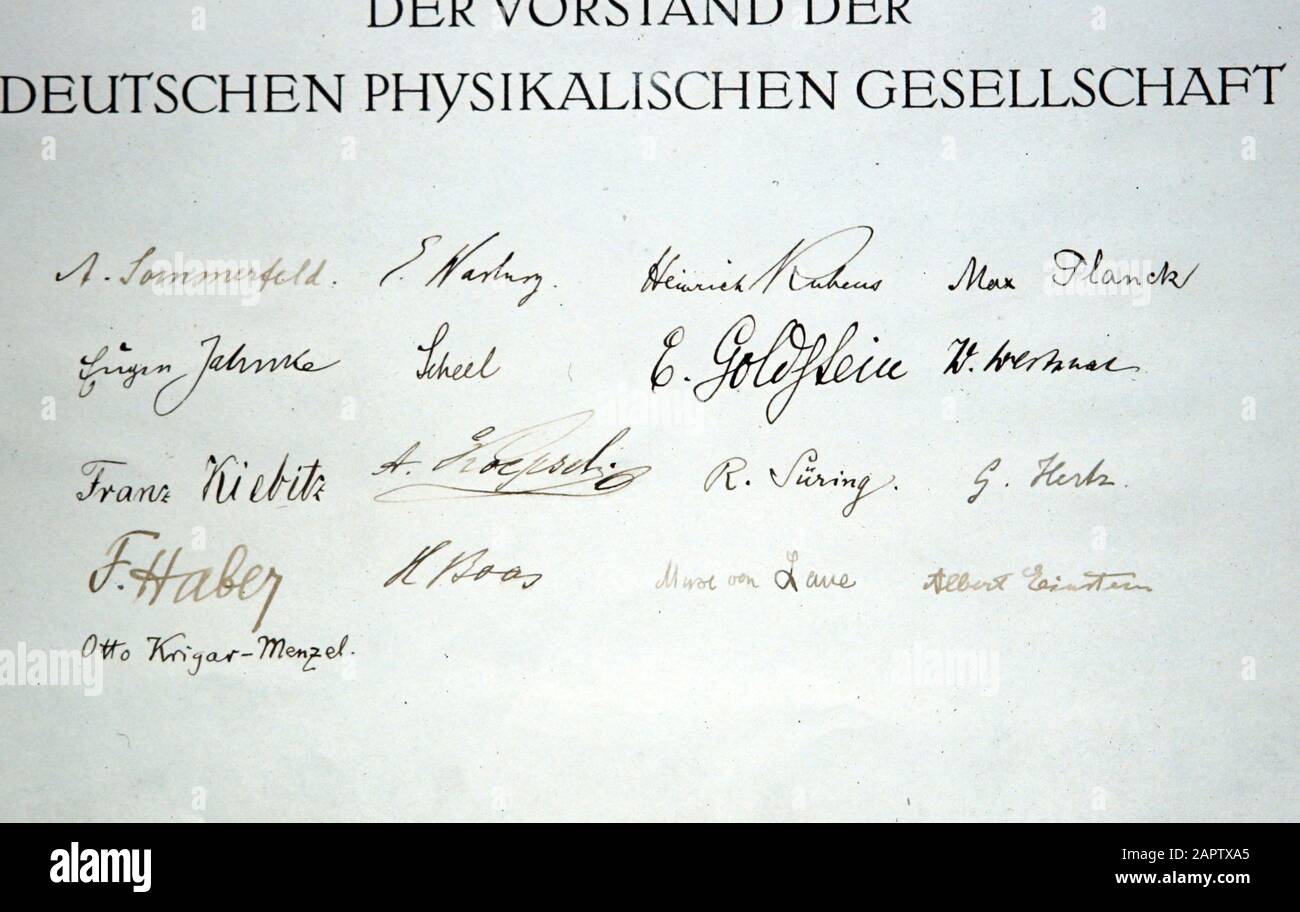 DER VORSTAND DER
DEUTSCHEN PHYSIKALISCHEN GESELLSCHAFT
A. Sommerfeld. E. Warburg. Heinrich Rubens Max Planck
Eugen Jahnke Scheel E. Goldstein W. Westphal
Franz Kiebitz A. R. Süring. G. Hertz.
F. Haber H Boas Max von Laue Albert Einstein
Otto Krigar-Menzel.
alamy
Image ID: 2APTXA5
www.alamy.com